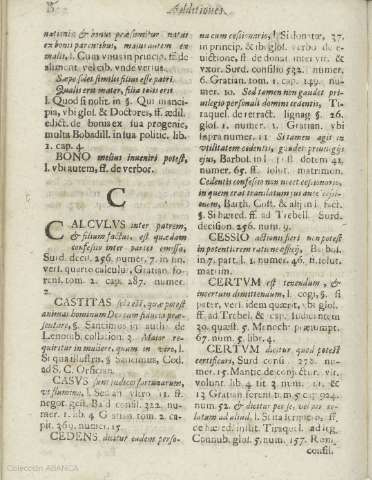 Additiones
naturis & bonus præsumitur natus
ex bonis parentibus, malus autem ex
malis, l. Cum vnus in princip. ff. de
aliment. vel cib. vnde versus.
Sæpe solet similis filius esse patri.
Qualis erit mater, filia talis erit.
l. Quod si nolit. in §. Qui manci-
pia, vbi glos. & Doctores, ff. ædil.
edict. de bonas ex sua progenie,
multa Bobadill. in sua politic. lib.
2. cap. 4.
BONO melius inueniri potest,
l. vbi autem, ff. de verbor.
C
CALCVLVS inter patrem,
& filium factus, est quædam
confessio inter partes emissa,
Surd. decis. 256. numer. 7. in fin.
vers. quarto calculus, Gratian. fo-
rens. tom. 2. cap. 287. numer.
2.
CASTITAS sola est, quæ potest
animas hominum Deo cum fiducia præ-
sentare, §. Sancimus in auth. de
Lenonib. collation. 3. Maior re-
quiritur in muliere, quam in viro, l.
Si qua illustris. §. Sancimus, Cod.
ad S. C. Orfician.
CASVS sunt iudices fortunarum,
vt flumina, l. Sed an vltro. 11. ff.
negot. gest. Bald. consil. 322. nu-
mer. 1. lib. 4. Gratian. tom. 2. ca-
pit. 369. numer. 15.
CEDENS, dicitur eadem perso-
na cum cessionario, l. Si donatæ, 37.
in princip. & ibi glos. verbo de e-
uictione, ff. de donat. inter vir. &
vxor. Surd. consilio 532. numer.
6. Gratian. tom. 1. cap. 139. nu-
mer. 10. Sed tamen non gaudet pri-
uilegio personali domini cedentis, Ti-
raquel. de retract. lignag. §. 26.
glos. 1. numer. 1. Gratian. vbi
supra numer. 11. Si tamen agit in
vtilitatem cedentis, gaudet priuilegijs
eius, Barbos. in l. 1. ff.
CESSIO actionis fieri non potest
in potentiorem ratione officij, Barbos.
in
CERTVM est tenendum, &
incertum dimittendum, l. cogi, §. si
pater, vers. idem quærit, vbi glos.
ff. ad Trebel. & cap. Iudicantem
30. quæst. 5. Menoch. præsumpt.
67. num. 5. lib. 4.
CERTVM dicitur quod potest
certificari, Surd. consil. 272. nu-
mer. 15. Mantic. de coniectur. vlt.
volunt. lib. 4. tit. 3. num. 11. &
13. Gratian. forens. tom. 5. cap. 924.
num. 52. & dicitur per se, vel per re-
latum ad aliud, l. Si ita scripsero, ff.
de hæred. instit. Tiraquel. ad leg.
Connub. glos. 5. num. 157. Rom.
consil.
Colección ABANCA